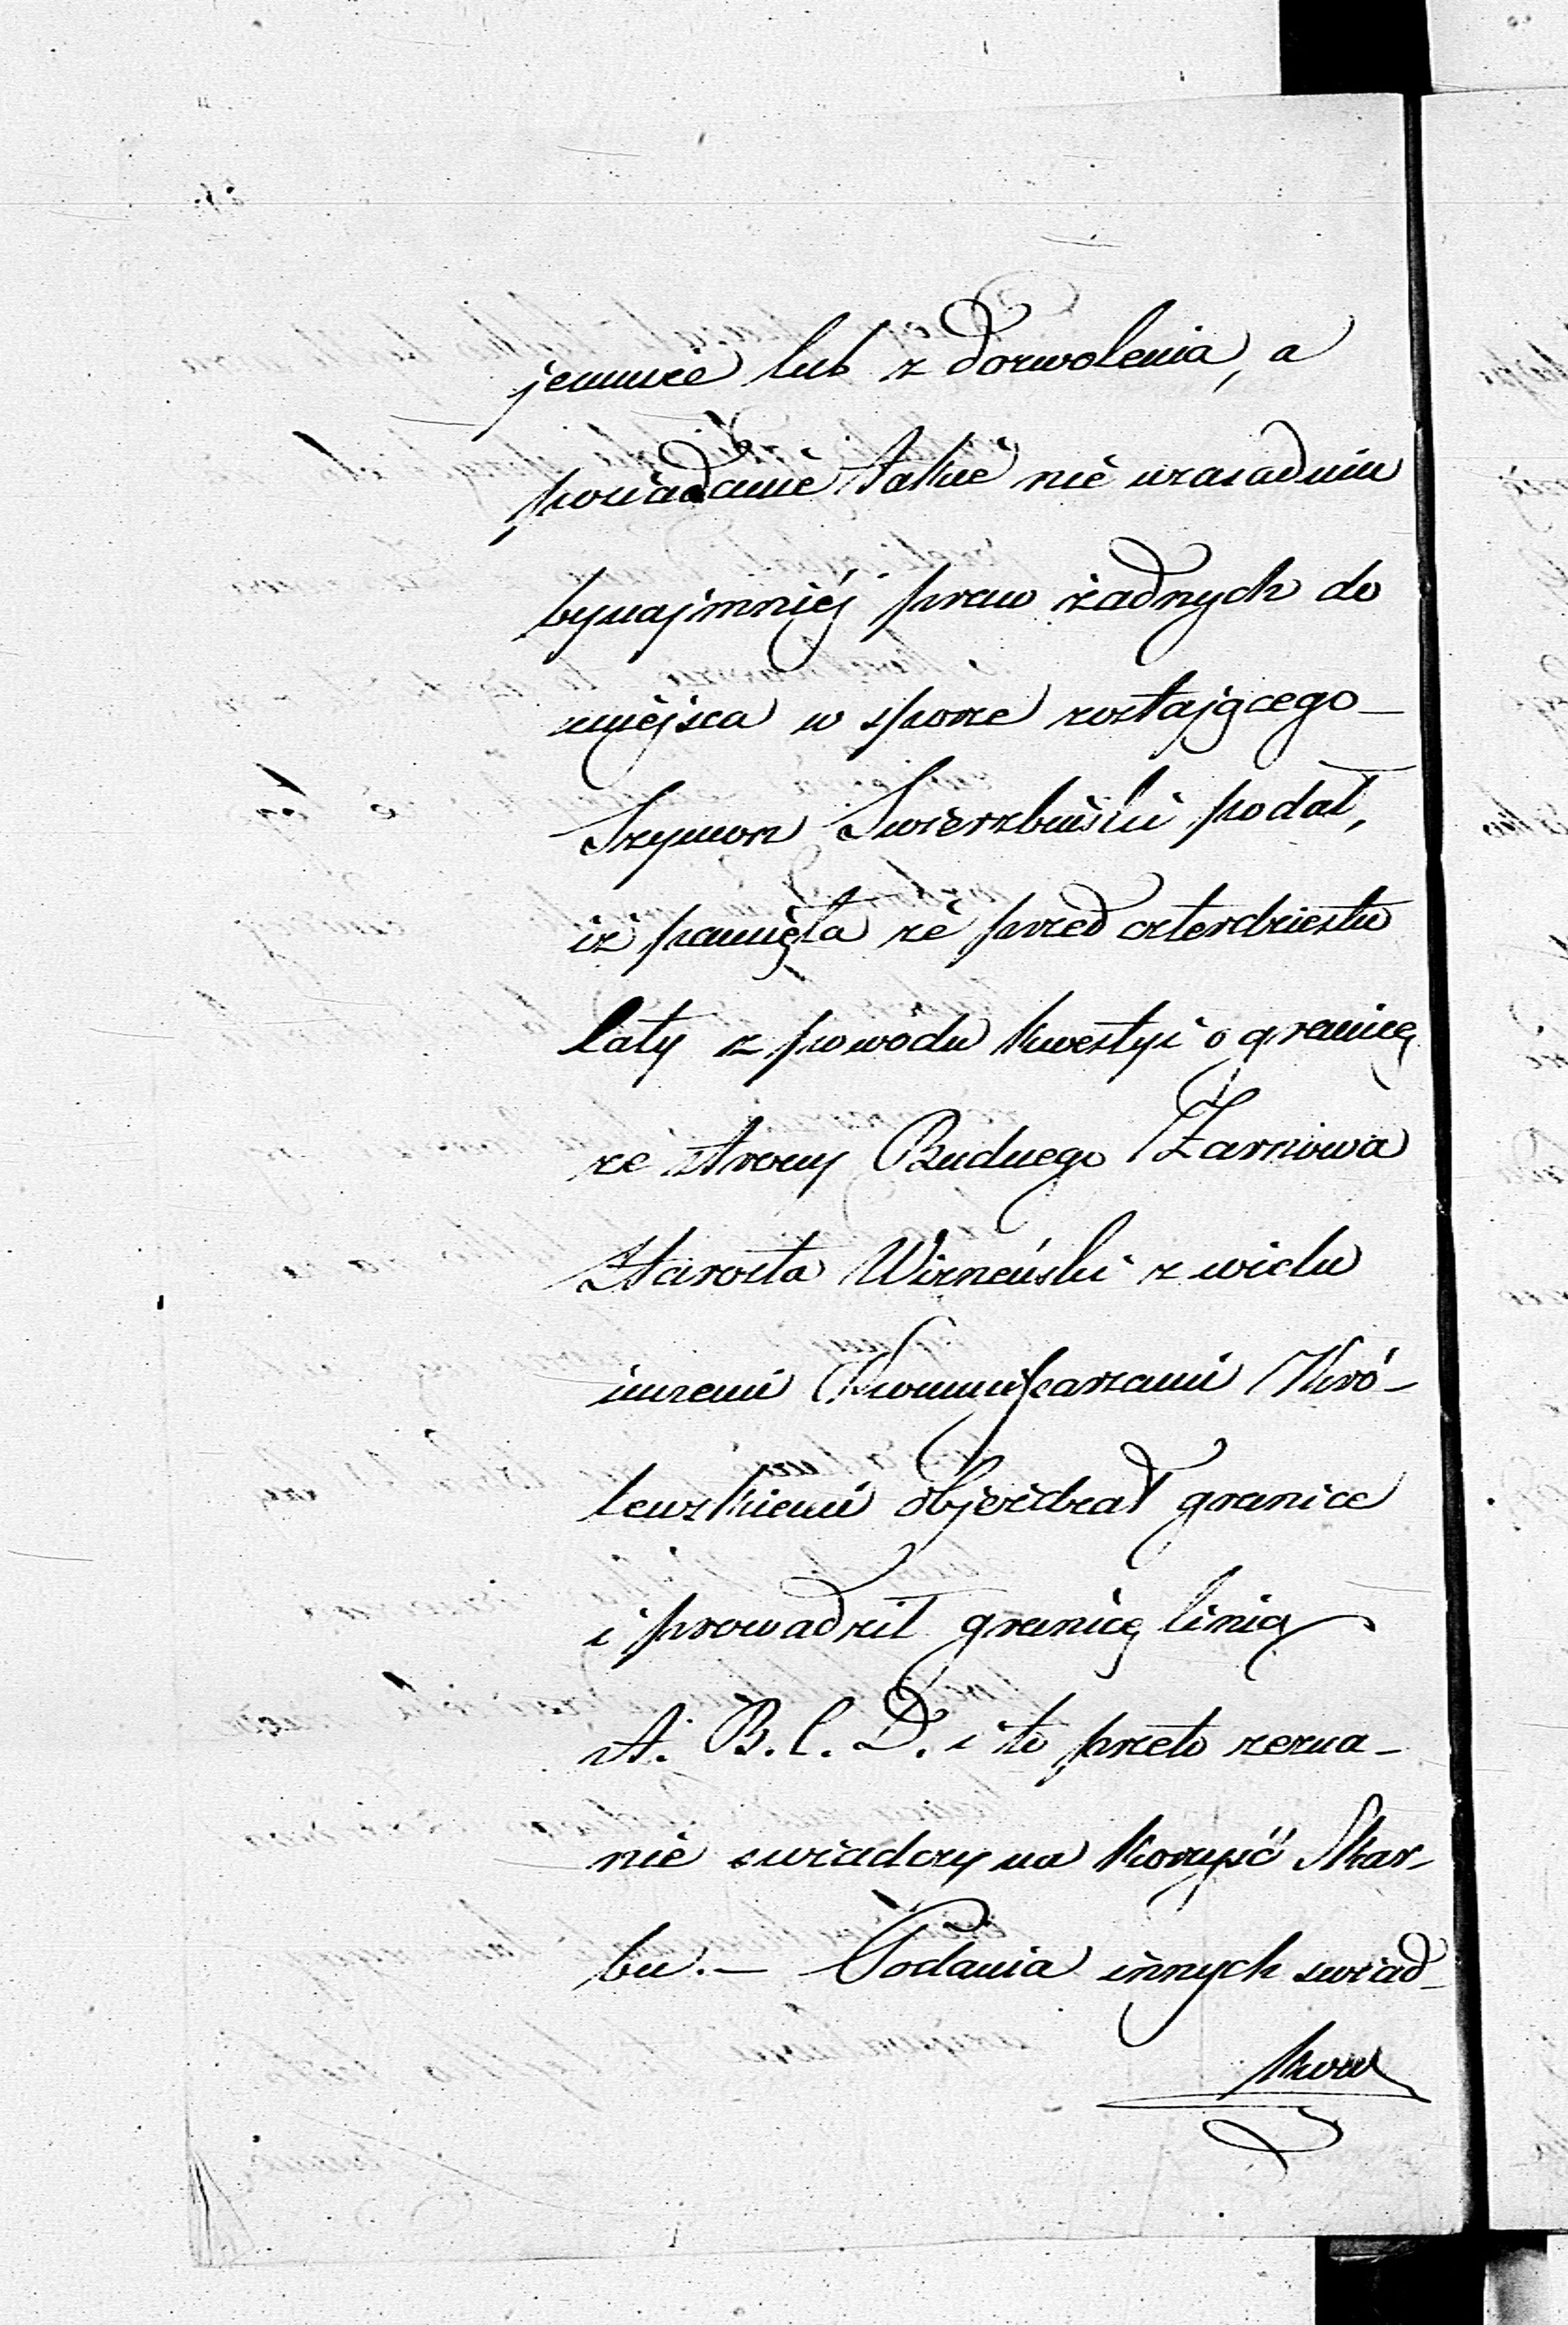 jemnie lub z dozwolenia, a
posiadanie takie nie uzasadnia
bynajmniéj praw żadnych do
miejsca w sporze zostającego_
Szymon Swierzbiński podał,
iż pamięta że przed czterdziestu
laty z powodu kwestyi o granicę
ze strony Rudnego Żarnowa
Starosta Wizneński z wielu
innemi Kommissarzami Kró-
lewskiemi objeżdżał granice
i prowadził granicę linią
A. B. C. D. i to przeto zezna-
nie swiadczy na korzyść Skar-
bu.— Podania innych swiad-
ków